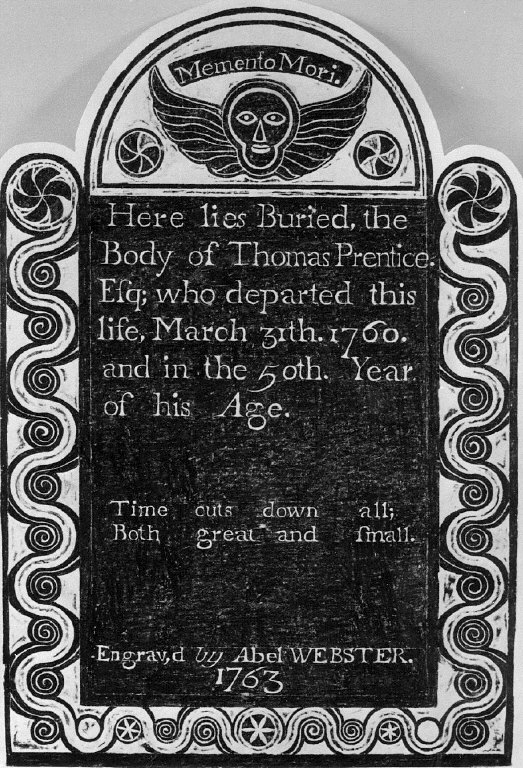 Memento Mori.
Here lies Buried, the
Body of Thomas Prentice.
Eſq; who departed this
life, March 31th. 1760.
and in the 50th. Year
of his Age.
Time cuts down all;
Both great and ſmall.
Engrav,d by Abel WEBSTER.
1763